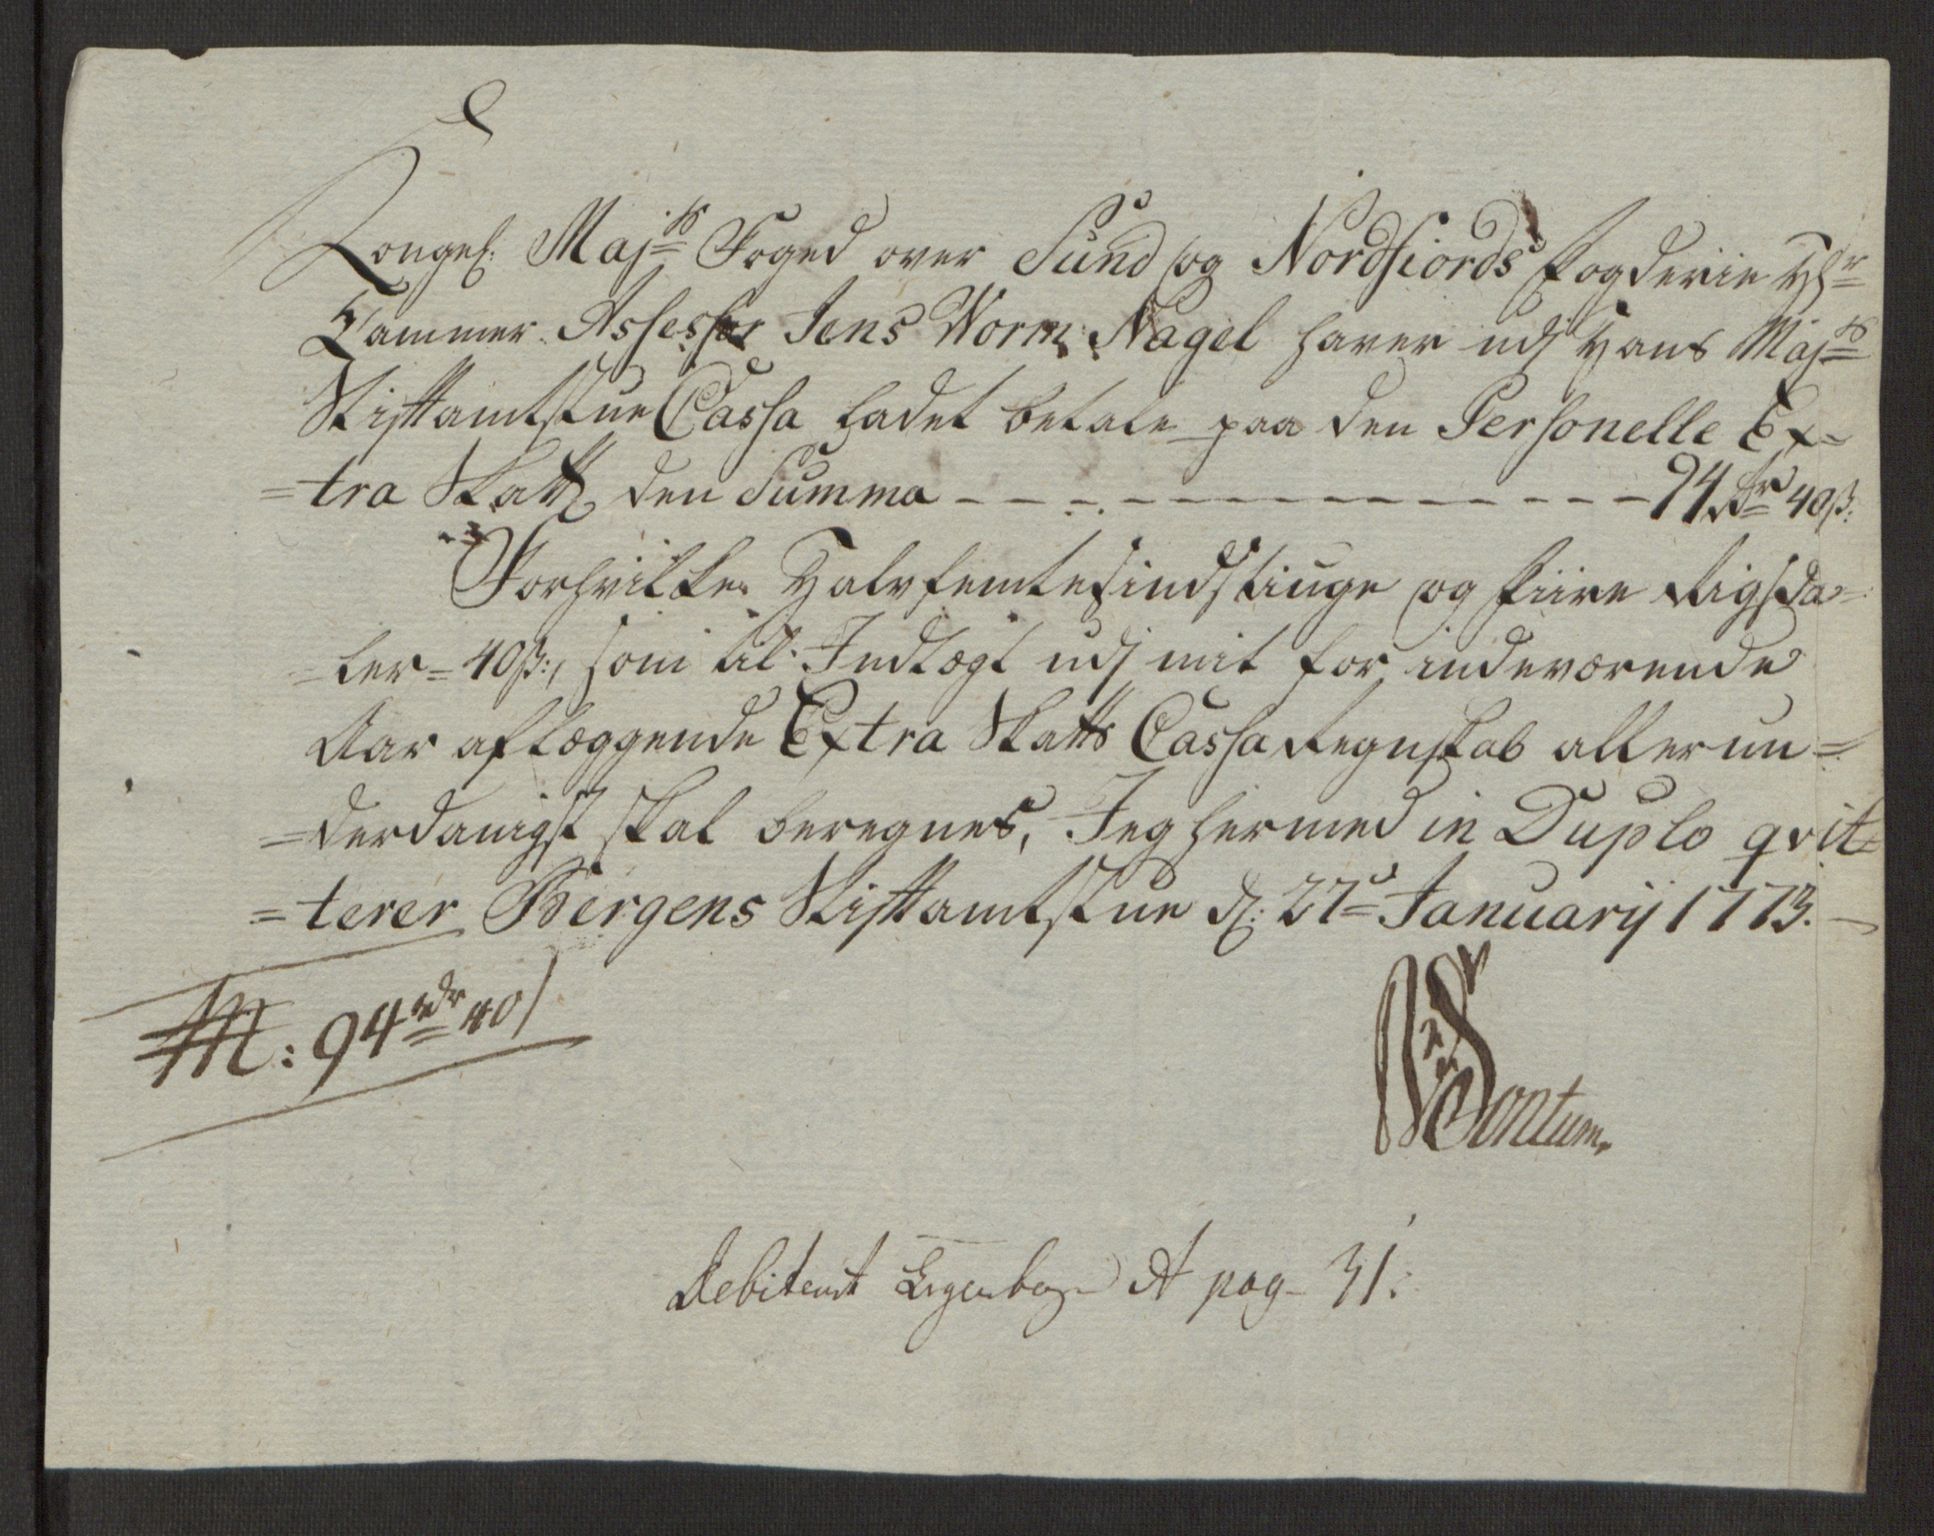 Kongel: Maj:ts Foged over Sund og Nordfiords Fogderie Hr
Cammer Assessor Jens Worm Nagel haver udj Hans Maj:ts
Stiftamtstue Cassa ladet betale paa den Personelle Ex=
=tra Skatt, den Summa - - - - - - - - - - - - - - 94 rdr 40 ß:
Forhvilke Halvfemtesindstiuge og fiire Rigsda=
=ler = 40 ß:, som til Indtægt udj mit for indeværende
Aar aflæggende Extra Skatts Cassa Regnskab allerun=
=derdanigst skal beregnes, Jeg hermed in Duplo qvit=
=terer Bergens Stiftamtstue d: 27de Januarij 1773.
M: 94 rdr 40 ß
Sontum
Debiteret A pag 31.